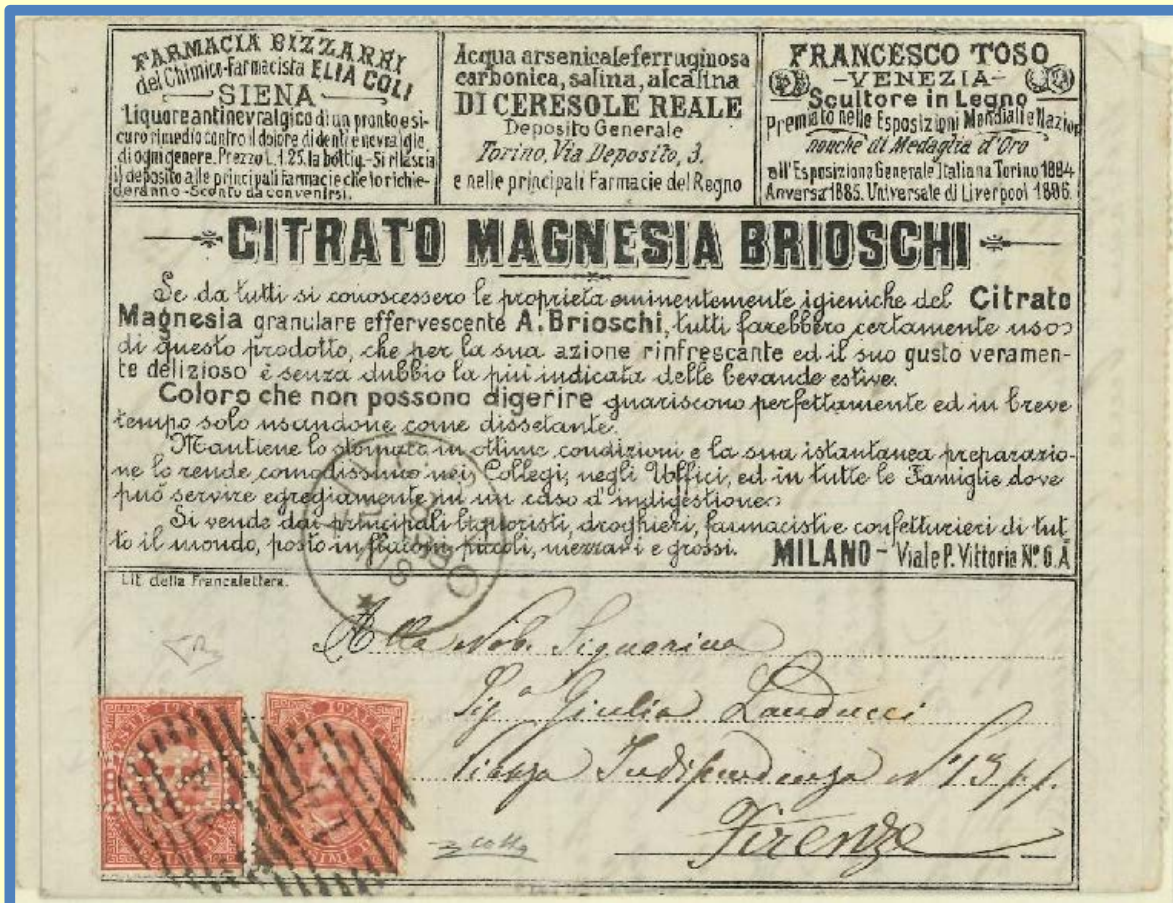 FARMACIA BIZZARRI
del Chimico-Farmacista ELIA COLI
SIENA
Liquore antinevralgico di un pronto e si-
curo rimedio contro il dolore di denti e nevralgie
di ogni genere. Prezzo L. 1.25. la bottig. - Si rilascia
il deposito alle principali farmacie che lo richie-
deranno - Sconto da convenirsi.
Acqua arsenicale ferruginosa
carbonica, salina, alcalina
DI CERESOLE REALE
Deposito Generale
Torino, Via Deposito, 3.
e nelle principali Farmacie del Regno
FRANCESCO TOSO
- VENEZIA -
Scultore in Legno
Premiato nelle Esposizioni Mondiali e Nazion
nonchè di Medaglia d'Oro
all'Esposizione Generale Italiana Torino 1884
Anversa 1885. Universale di Liverpool 1886.
CITRATO MAGNESIA BRIOSCHI
Se da tutti si conoscessero le proprietà eminentemente igieniche del Citrato
Magnesia granulare effervescente A. Brioschi, tutti farebbero certamente uso
di questo prodotto, che per la sua azione rinfrescante ed il suo gusto veramen-
te delizioso è senza dubbio la più indicata delle bevande estive.
Coloro che non possono digerire guariscono perfettamente ed in breve
tempo solo usandone come dissetante.
Mantiene lo stomaco in ottime condizioni e la sua istantanea preparazio-
ne lo rende comodissimo nei Collegi, negli Uffici, ed in tutte le Famiglie dove
può servire egregiamente in un caso d'indigestione.
Si vende dai principali liquoristi, droghieri, farmacisti e confetturieri di tut-
to il mondo, posto in flacons piccoli, mezzani e grossi. MILANO - Viale P. Vittoria Nº 6. A
Lit. della Francalettera.
Alla Nob. Signorina
Sigª Giulia Landucci
Piazza Indipendenza nº 13 p.p.
Firenze